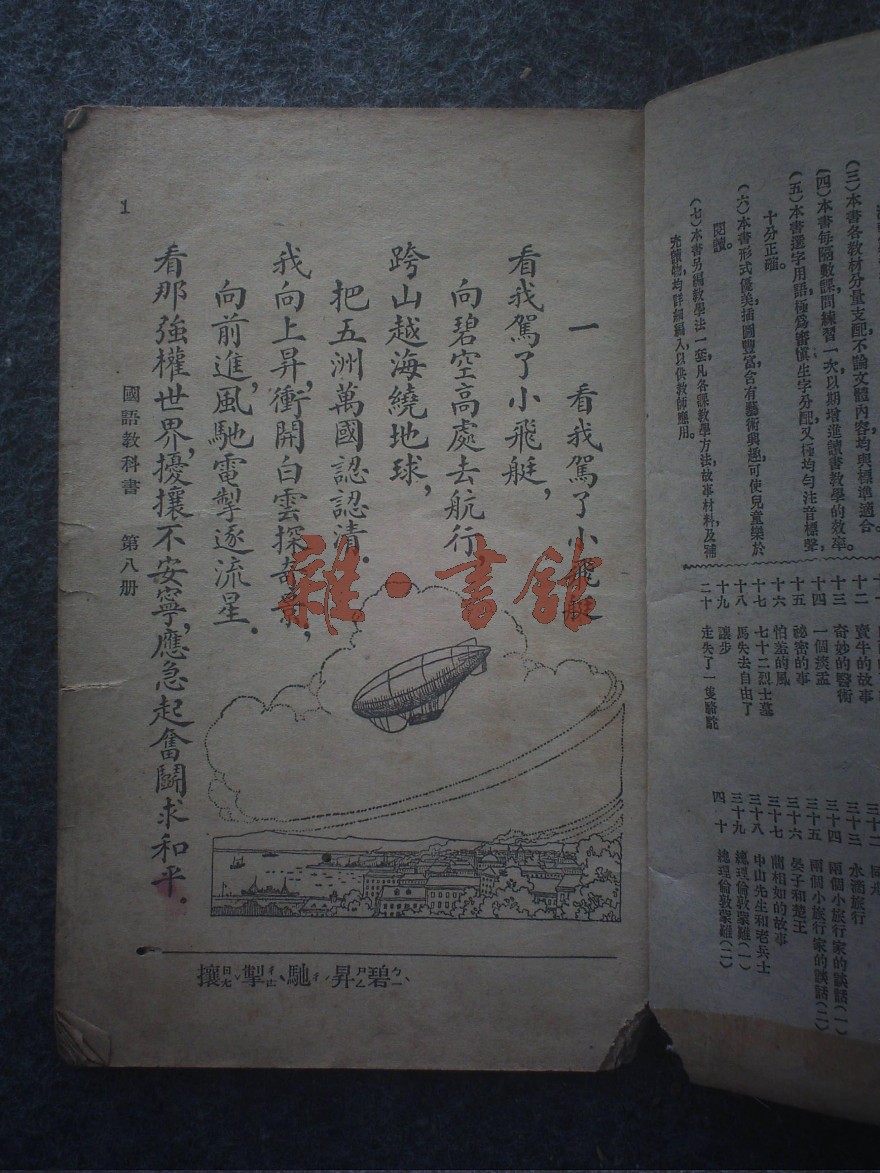 (三)本書各教材分量支配不論文體內容均與標準適合。
(四)本書每隔數課間練習一次以期增進讀書教學的效率。
(五)本書選字用語極爲審慎生字分配又極均勻注音標聲,
十分正確。
(六)本書形式優美插圖豐富含有藝術興趣可使兒童樂於
閱讀。
(七)本書另編教學法一套凡各課教學方法,故事材料,及補
充讀物均詳細編入,以供教師應用。
十二 賣牛的故事
十三 奇妙的醫術
十四 一個痰盂
十五 祕密的事
十六 怕羞的鳳
十七 七十二烈士墓
十八 馬失去自由了
十九 讓步
二十 走失了一隻駱駝
三十三 水滴旅行
三十四 兩個小旅行家的談話(一)
三十五 兩個小旅行家的談話(二)
三十六 晏子和楚王
三十七 藺相如的故事
三十八 中山先生和老兵士
三十九 總理倫敦蒙難(一)
四十 總理倫敦蒙難(二)
一 看我駕了小飛艇
看我駕了小飛艇,
向碧空高處去航行,
跨山越海繞地球,
把五洲萬國認認清.
我向上昇,衝開白雲探奇景,
向前進,風馳電掣逐流星.
看那強權世界,擾攘不安寧,應急起奮鬭求和平.
國語教科書 第八册
1
碧ㄅㄧˋ 昇ㄕㄥ 馳ㄔˊ 掣ㄔㄜˋ 攘ㄖㄤˇ
雜·書館